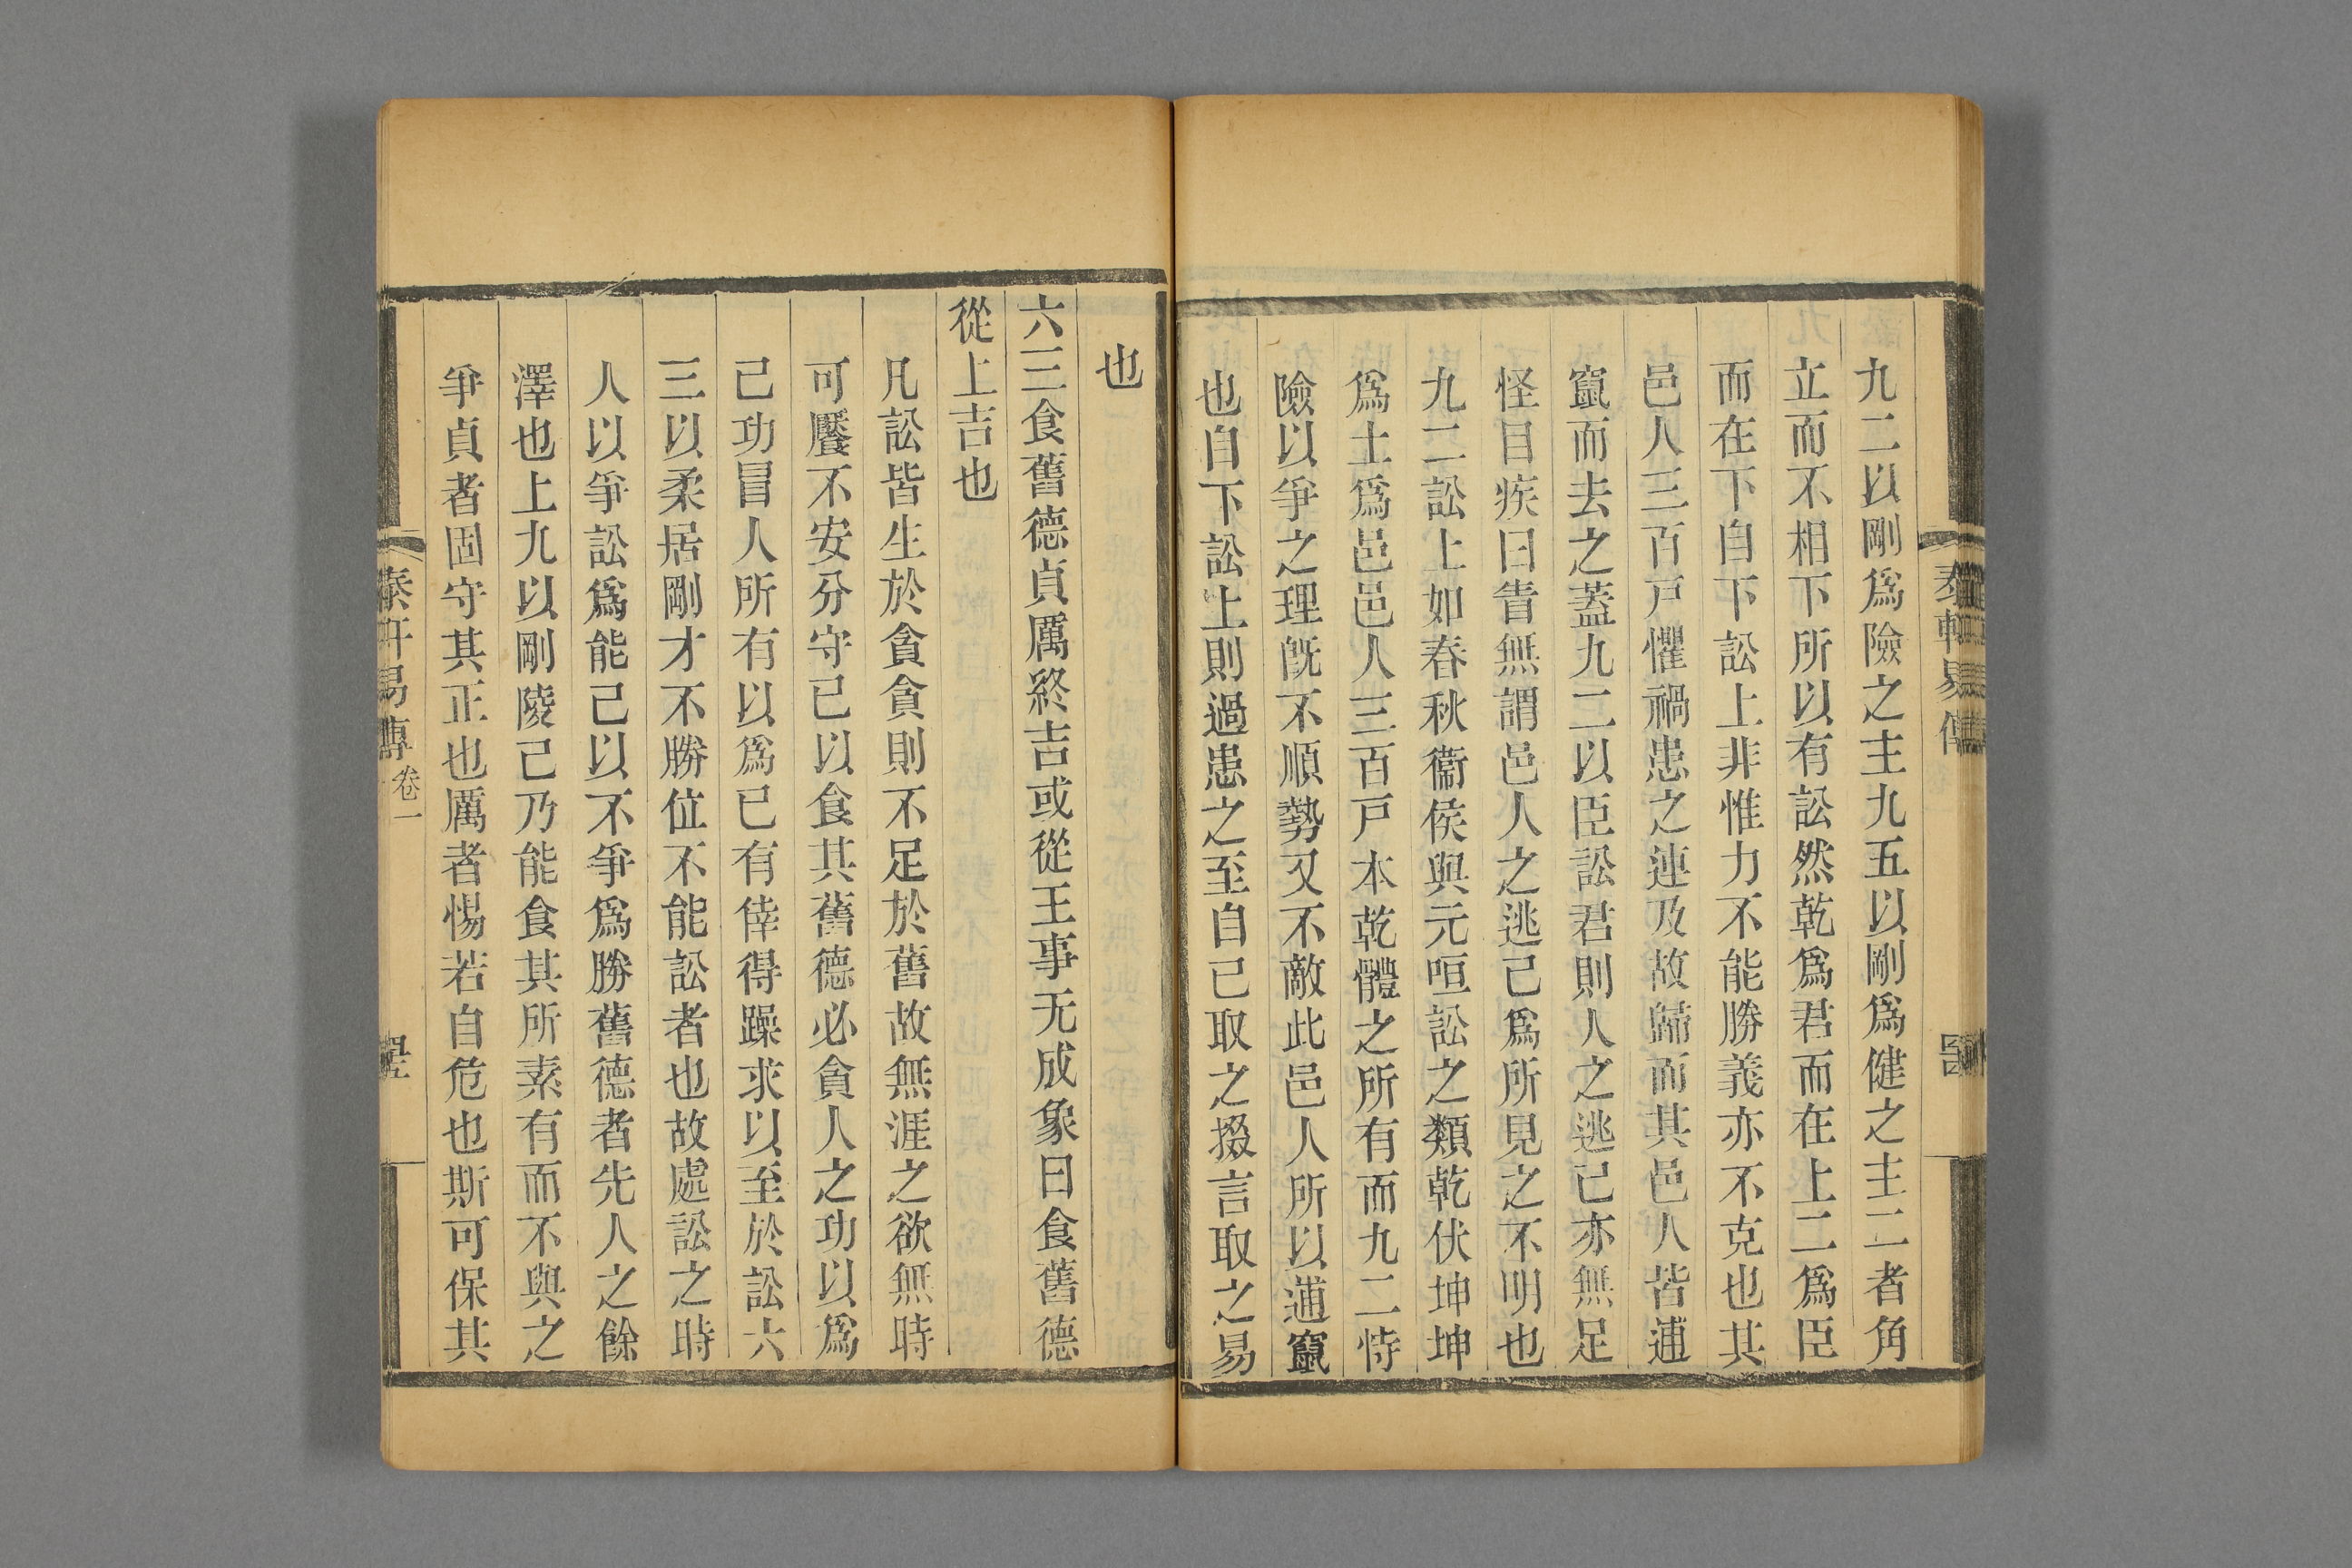 九二以剛爲險之主九五以剛爲健之主二者角
立而不相下所以有訟然乾爲君而在上二爲臣
而在下自下訟上非惟力不能勝義亦不克也其
邑人三百戸懼禍患之連及故歸而其邑人皆逋
竄而去之蓋九二以臣訟君則人之逃己亦無足
怪目疾曰眚無謂邑人之逃己爲所見之不明也
九二訟上如春秋衞侯與元咺訟之類乾伏坤坤
爲土爲邑邑人三百戸本乾體之所有而九二恃
險以爭之理旣不順勢又不敵此邑人所以逋竄
也自下訟上則過患之至自己取之掇言取之易
也
六三食舊德貞厲終吉或從王事无成象曰食舊德
從上吉也
凡訟皆生於貪貪則不足於舊故無涯之欲無時
可饜不安分守已以食其舊德必貪人之功以爲
己功冒人所有以爲已有倖得躁求以至於訟六
三以柔居剛才不勝位不能訟者也故處訟之時
人以爭訟爲能己以不爭爲勝舊德者先人之餘
澤也上九以剛陵己乃能食其所素有而不與之
爭貞者固守其正也厲者惕若自危也斯可保其
易傳 卷一